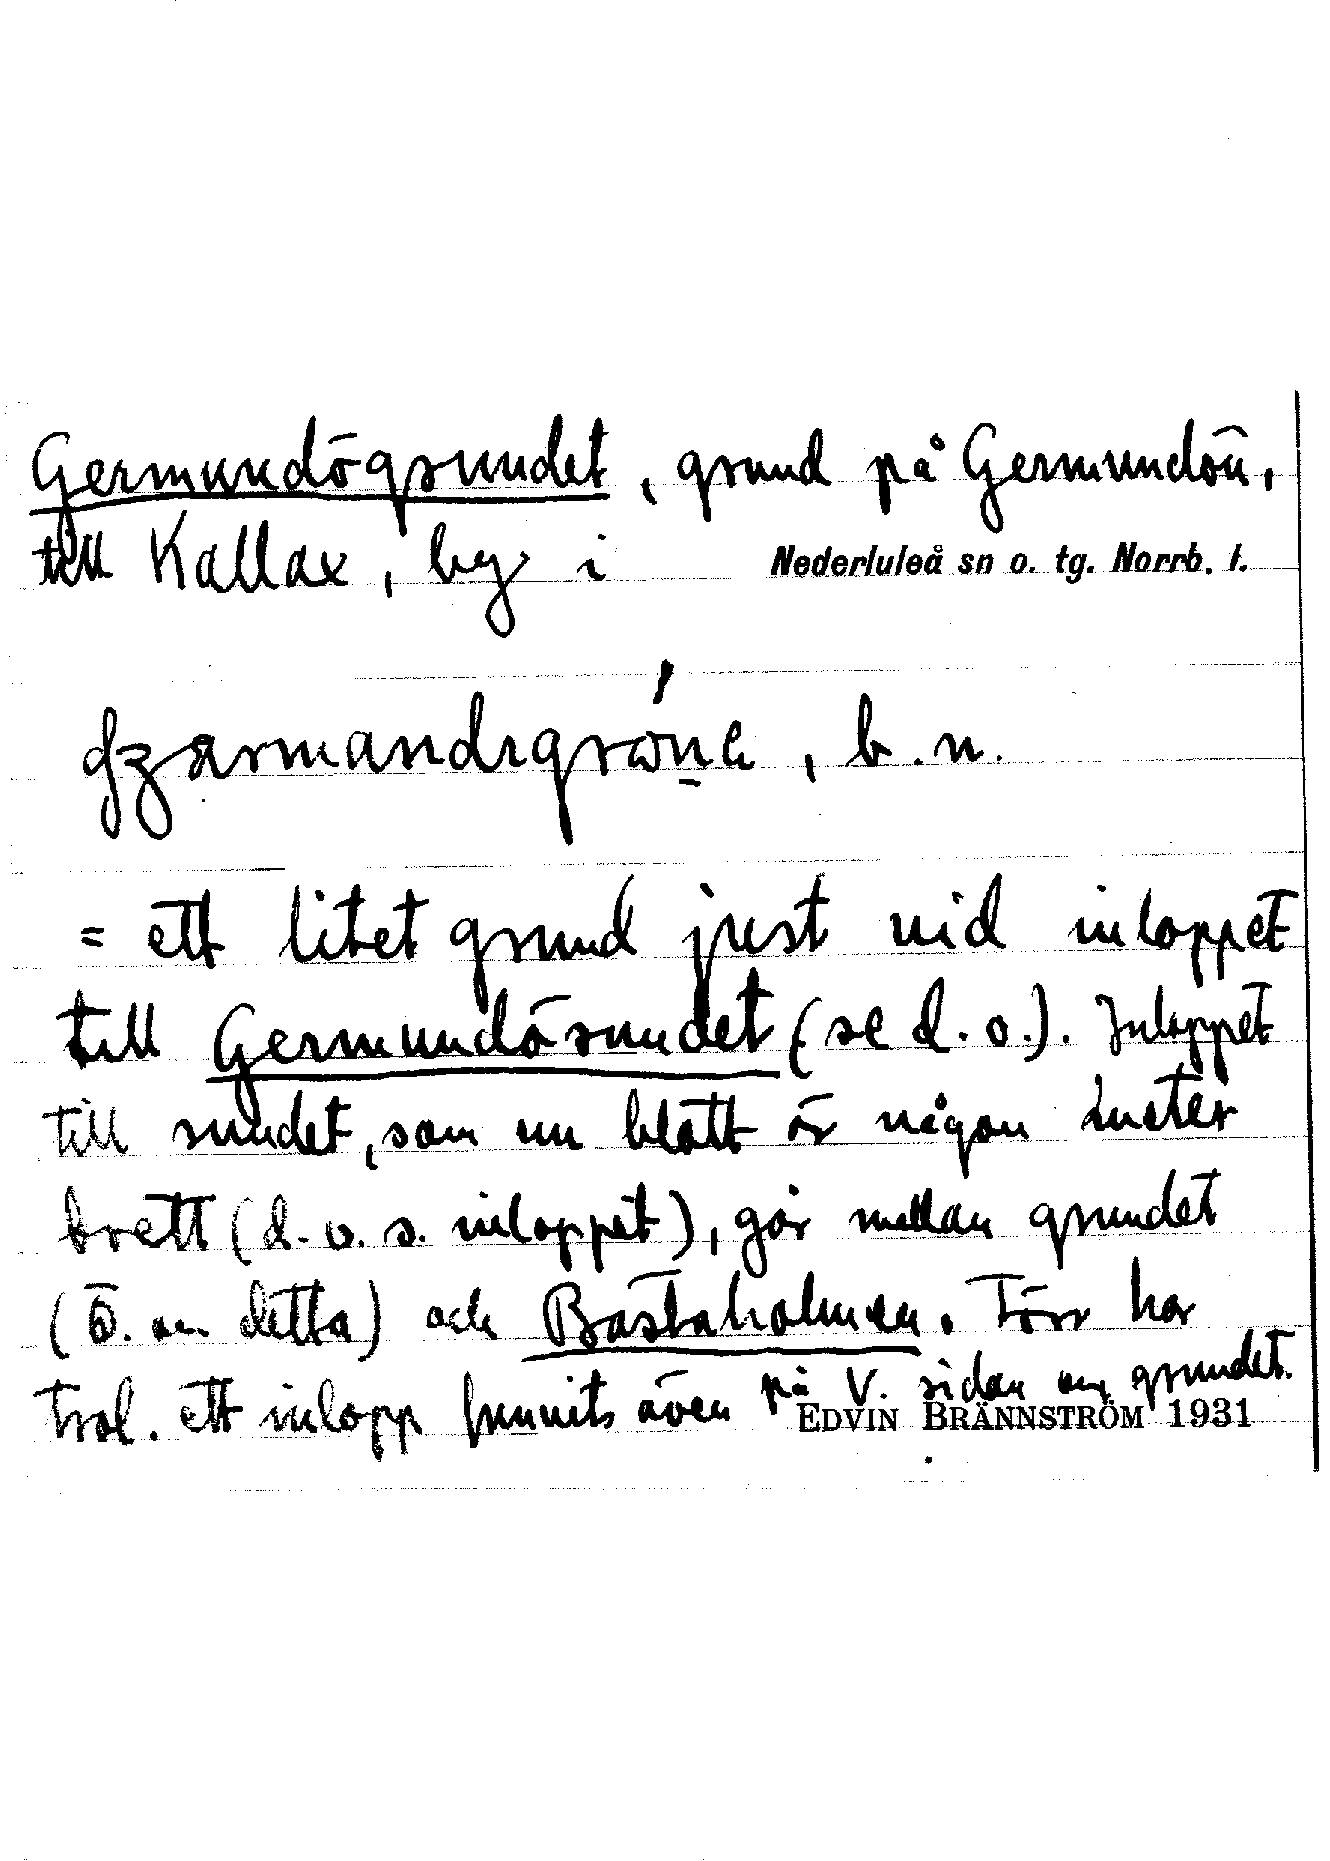 Germundögrundet, grund på Germundön,
till Kallax, by i Nederluleå sn o. tg. Norrb. l.
, b.n.
= ett litet grund just vid inloppet
till Germundösundet (se d. o.). Inloppet
till sundet, som nu blott är någon meter
brett (d. v. s. inloppet), går mellan grundet
(ö. om detta) och Bastaholmen. Förr har
trol. ett inlopp funnits även på V. sidan om grundet.
EDVIN BRÄNNSTRÖM 1931